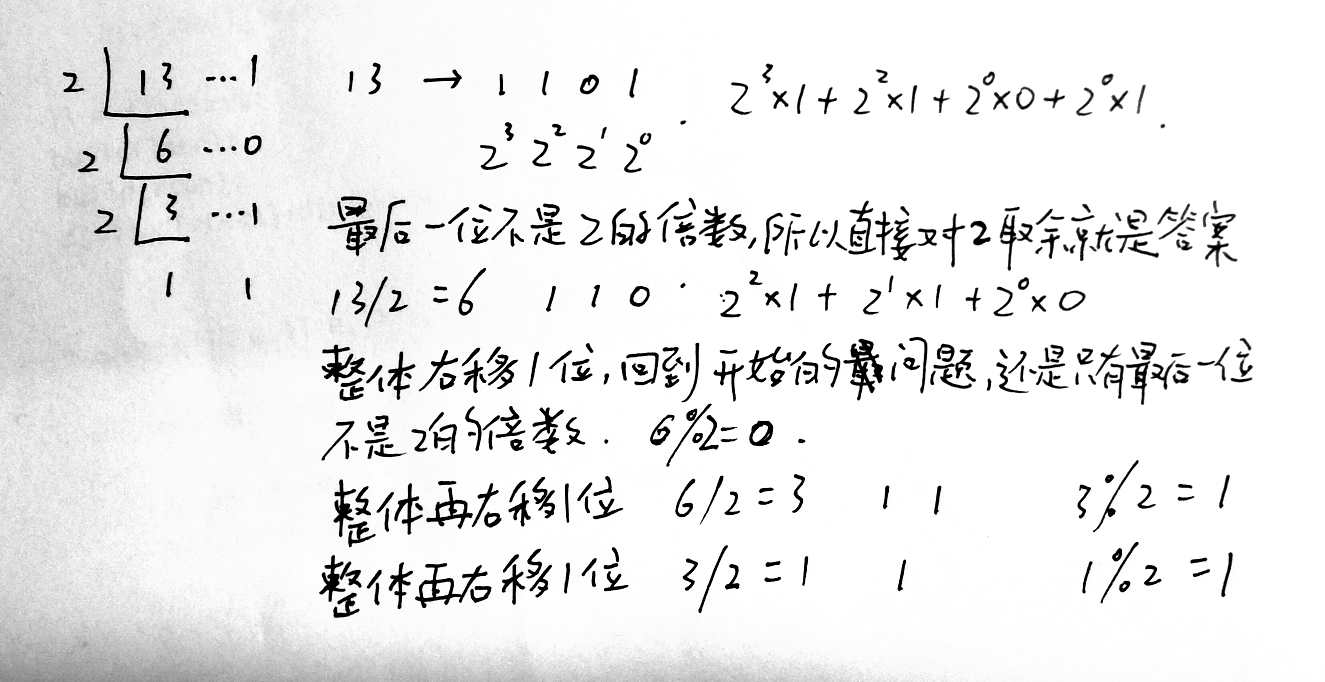 2 13 …1
2 6 …0
2 3 …1
1 1
13 → 1 1 0 1 . 2³×1 + 2²×1 + 2⁰×0 + 2⁰×1 .
2³ 2² 2¹ 2⁰
最后一位不是2的倍数,所以直接对2取余就是答案
13/2 = 6 1 1 0 . 2²×1 + 2¹×1 + 2⁰×0
整体右移1位,回到开始的问题,还是只有最后一位
不是2的倍数. 6%2=0 .
整体再右移1位 6/2=3 1 1 3%2=1
整体再右移1位 3/2=1 1 1%2=1